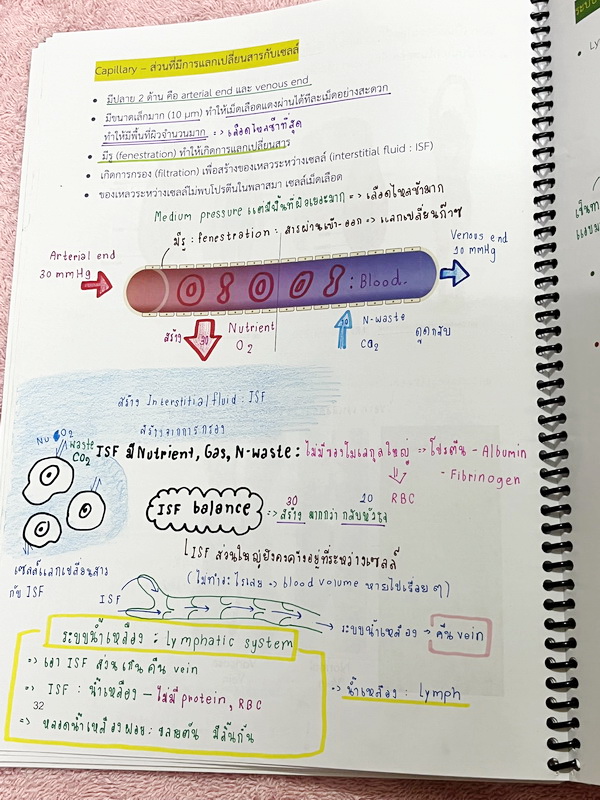 Capillary – ส่วนที่มีการแลกเปลี่ยนสารกับเซลล์
• มีปลาย 2 ด้าน คือ arterial end และ venous end
• มีขนาดเล็กมาก (10 µm) ทำให้เม็ดเลือดแดงผ่านได้ทีละเม็ดอย่างสะดวก
ทำให้มีพื้นที่ผิวจำนวนมาก => เลือดไหลช้าที่สุด
• มีรู (fenestration) ทำให้เกิดการแลกเปลี่ยนสาร
• เกิดการกรอง (filtration) เพื่อสร้างของเหลวระหว่างเซลล์ (interstitial fluid : ISF)
• ของเหลวระหว่างเซลล์ไม่พบโปรตีนในพลาสมา เซลล์เม็ดเลือด
Medium pressure แต่มีพื้นที่ผิวเยอะมาก => เลือดไหลช้ามาก
มีรู : fenestration : สารผ่านเข้า-ออก => แลกเปลี่ยนก๊าซ
Arterial end
30 mmHg
Venous end
10 mmHg
: Blood.
สร้าง
30
Nutrient
O2
10
N-waste
CO2
ดูดกลับ
สร้าง Interstitial fluid : ISF
สร้างจากการกรอง
Nu O2
waste
CO2
ISF มี Nutrient, Gas, N-waste : ไม่มีของโมเลกุลใหญ่ => โปรตีน - Albumin
- Fibrinogen
RBC
ISF balance
30 10
=> สร้าง มากกว่า กลับหัวใจ
ISF ส่วนใหญ่ยังคงค้างอยู่ที่ระหว่างเซลล์
(ไม่ทำอะไรเลย => blood volume หายไปเรื่อย ๆ)
เซลล์แลกเปลี่ยนสาร
กับ ISF
ISF
ระบบน้ำเหลือง → คืน vein
ระบบน้ำเหลือง : Lymphatic system
=> เอา ISF ส่วนเกิน คืน vein
=> ISF : น้ำเหลือง — ไม่มี protein, RBC
=> น้ำเหลือง : lymph
32
=> หลอดน้ำเหลืองฝอย : ปลายตัน มีลิ้นกั้น